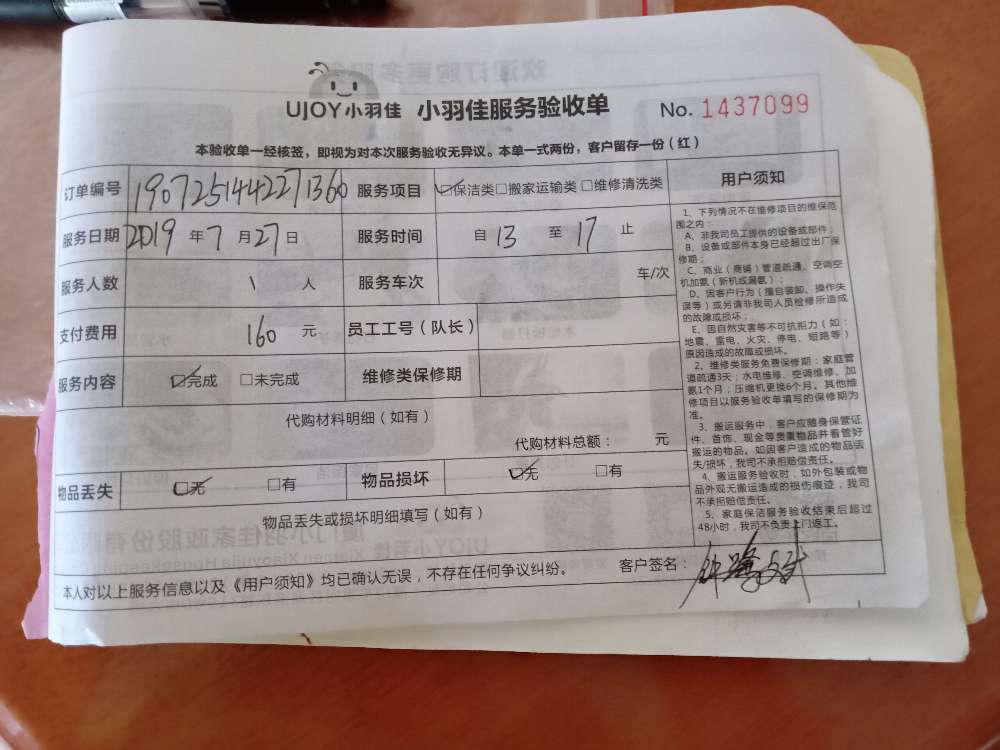 UJOY小羽佳 小羽佳服务验收单 No. 1437099
本验收单一经核签，即视为对本次服务验收无异议。本单一式两份，客户留存一份（红）
订单编号 1907251442271360 服务项目 ☑保洁类□搬家运输类□维修清洗类
服务日期 2019 年 7 月 27 日 服务时间 自 13 至 17 止
服务人数 1 人 服务车次 车/次
支付费用 160 元 员工工号（队长）
服务内容 ☑完成 □未完成 维修类保修期
代购材料明细（如有）
代购材料总额： 元
物品丢失 ☑无 □有 物品损坏 ☑无 □有
物品丢失或损坏明细填写（如有）
本人对以上服务信息以及《用户须知》均已确认无误，不存在任何争议纠纷。 客户签名：
用户须知
1、下列情况不在维修项目的维保范
围之内：
A、非我司员工提供的设备或部件；
B、设备或部件本身已经超过出厂保
修期；
C、商业（商铺）管道疏通、空调空
机加氨（新机或漏氨）；
D、因客户行为（擅自装卸、操作失
误等）或另请非我司人员检修所造成
的故障或损坏；
E、因自然灾害等不可抗拒力（如：
地震、雷电、火灾、停电、短路等）
原因造成的故障或损坏。
2、维修类服务免费保修期：家庭管
道疏通3天；水电维修、空调维修、加
氨1个月；压缩机更换6个月。其他维
修项目以服务验收单填写的保修期为
准。
3、搬运服务中，客户应随身保管证
件、首饰、现金等贵重物品并看管好
搬运的物品。如因客户造成的物品丢
失/损坏，我司不承担赔偿责任。
4、搬运服务验收时，如外包装或物
品外观无搬运造成的损伤痕迹，我司
不承担赔偿责任。
5、家庭保洁服务验收结束后超过
48小时，我司不负责上门返工。